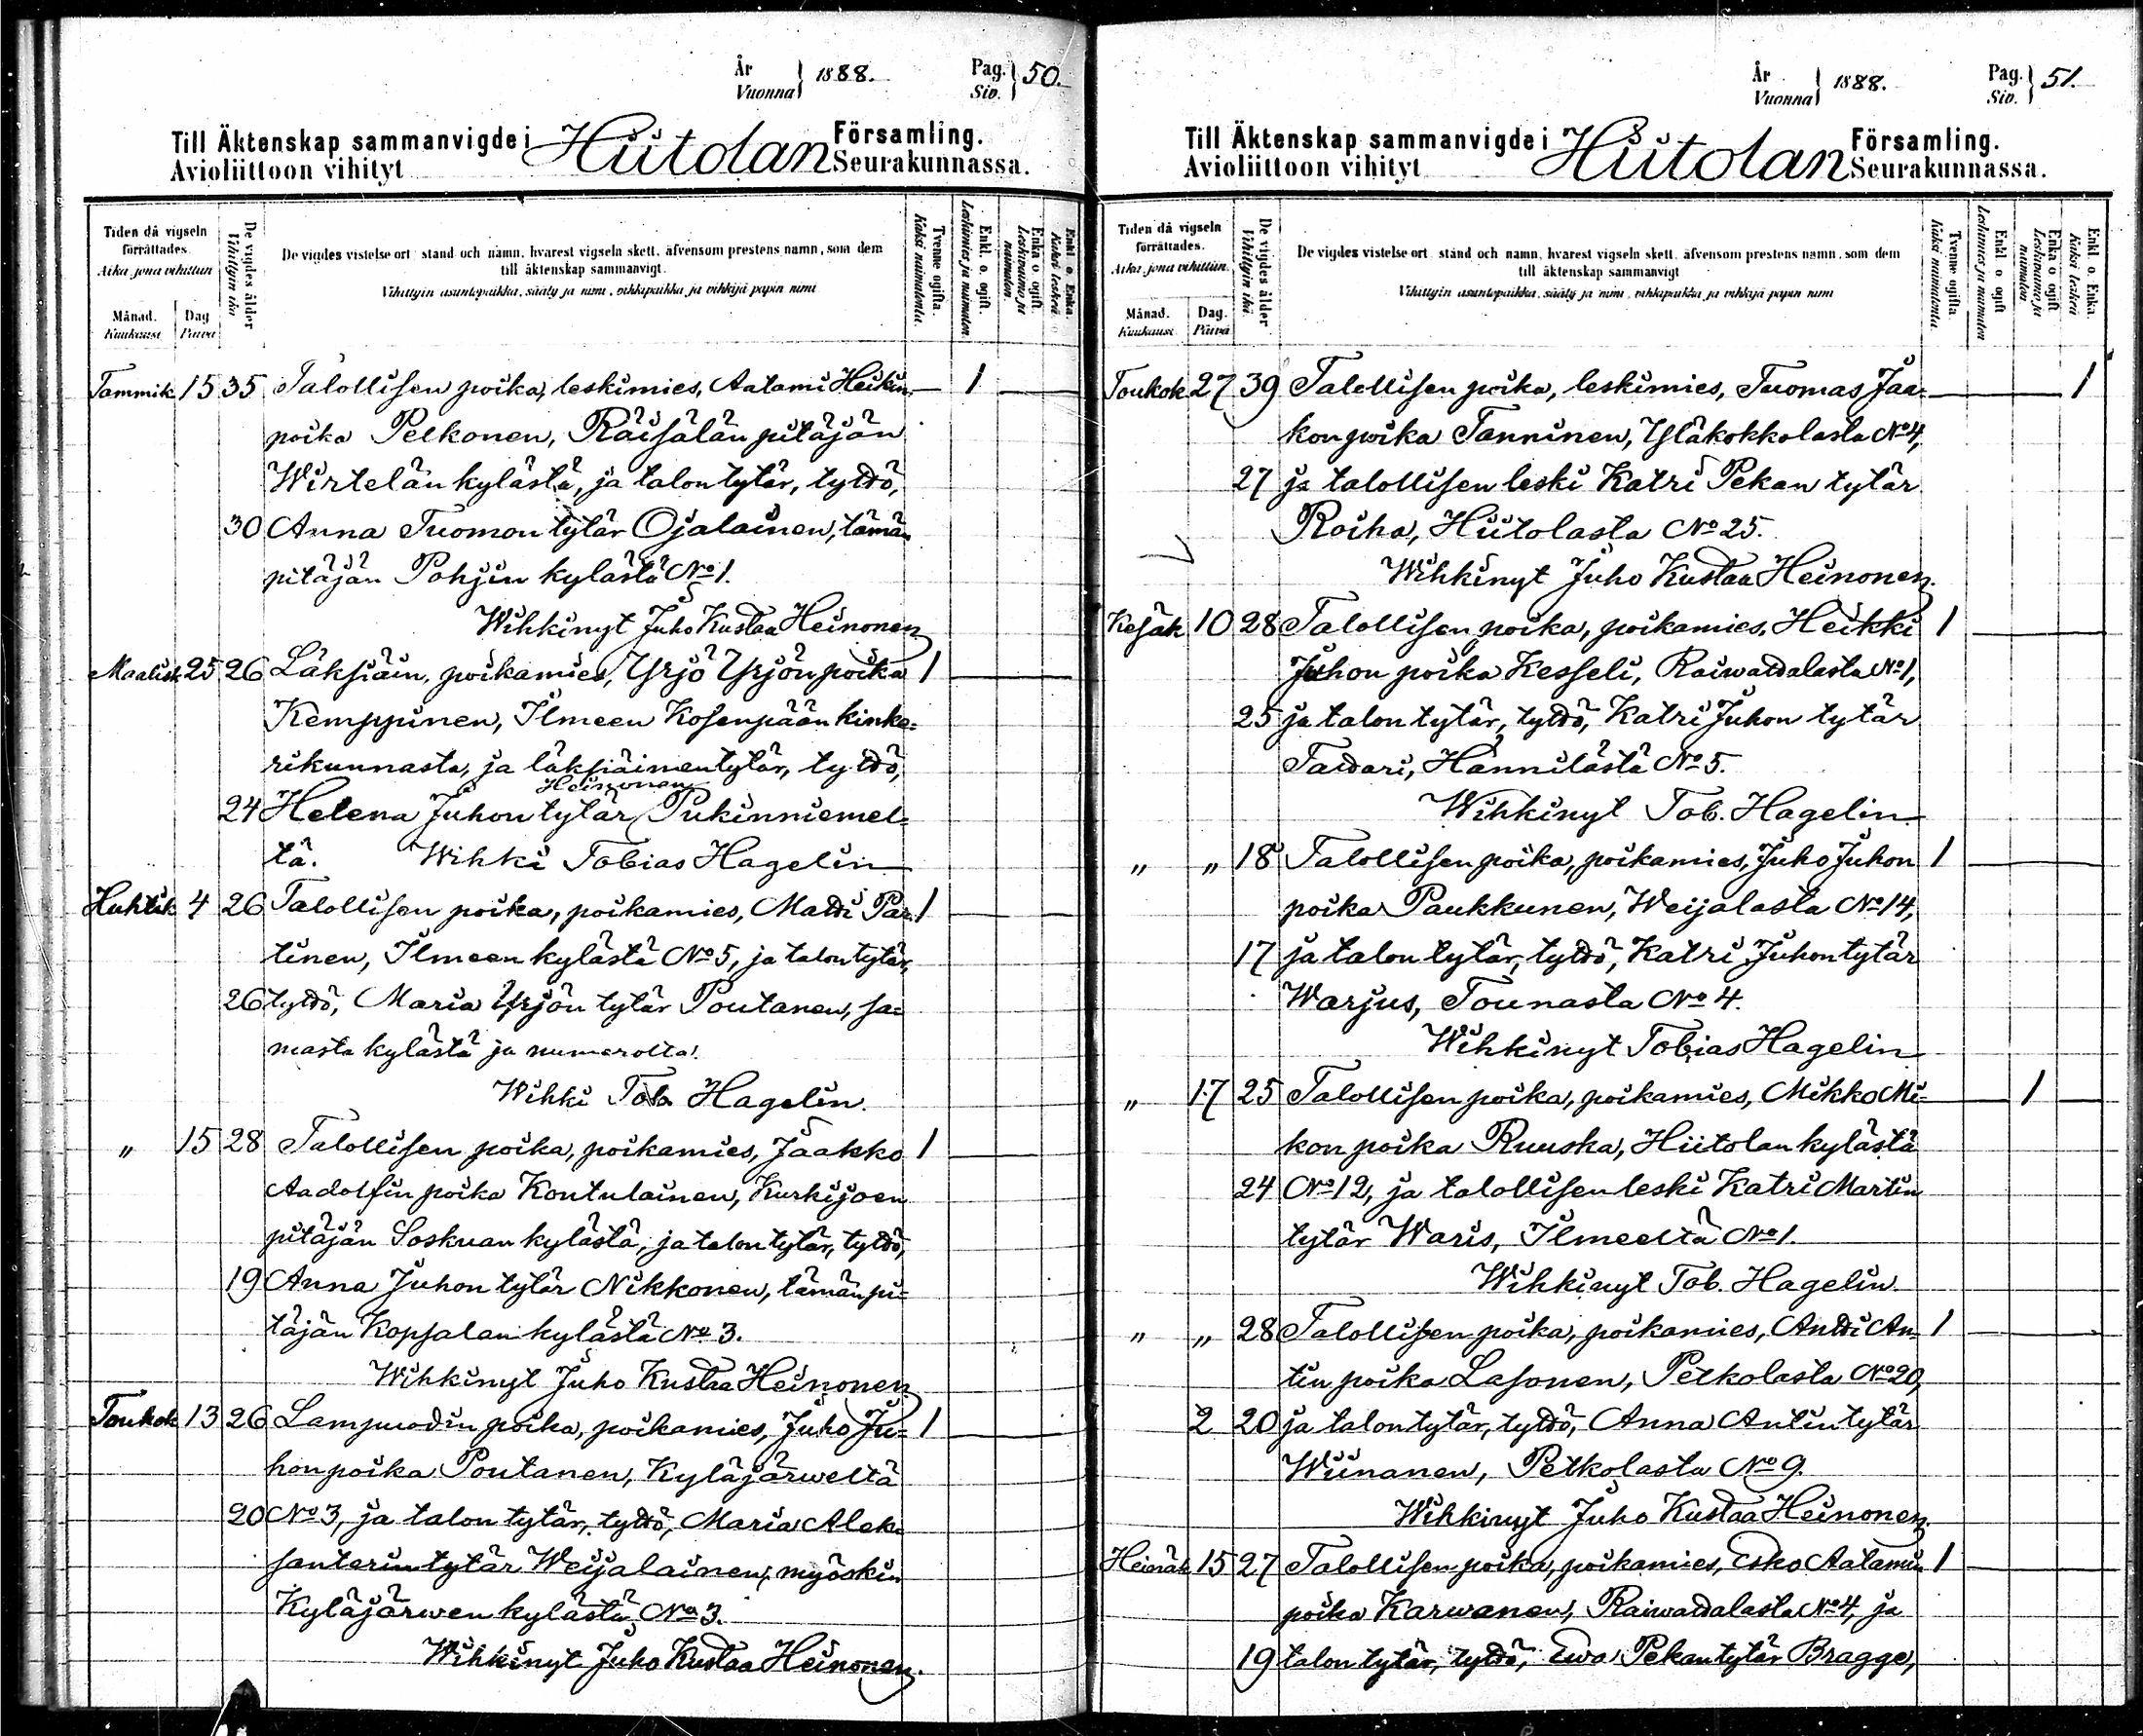 År
Vuonna } 1888.
Pag.
Siv. } 50.
Till Äktenskap sammanvigde i Hiitolan Församling.
Avioliittoon vihityt Seurakunnassa.
Tiden då vigseln förrättades.
Aika jona vihittiin
Månad. Kuukausi
Dag Päivä
De vigdes ålder
Vihittyin ikä
De vigdes vistelse ort stånd och namn, hvarest vigseln skett, äfvensom prestens namn, som dem
till äktenskap sammanvigt.
Vihittyin asuntopaikka, sääty ja nimi, vihkipaikka ja vihkijä papin nimi
Tvenne ogifta. Kaksi naimatonta.
Enkl. o. ogift. Leskimies ja naimaton.
Enka o ogift. Leskivaimo ja naimaton.
Enkl. o. Enka. Kaksi leskeä
Tammik 15 35 Talollisen poika, leskimies, Aatami Heikin 1
poika Pelkonen, Räisälän pitäjän
Wirtelän kylästä, ja talon tytär, tyttö,
30 Anna Tuomon tytär Ojalainen, tämän
pitäjän Pohjin kylästä No 1.
Wihkinyt Juho Kustaa Heinonen
Maalisk 25 26 Läksiäin, poikamies, Yrjö Yrjön poika 1
Kemppinen, Ilmeen Kosenpään kinke=
rikunnasta, ja läksiäimen tytär, tyttö,
Heinonen
24 Helena Juhon tytär Pukinniemel=
tä. Wihki Tobias Hagelin
Huhtik 4 26 Talollisen poika, poikamies, Matti Par 1
tinen, Ilmeen kylästä No 5, ja talon tytär,
26 tyttö, Maria Yrjön tytär Poutanen, sa=
masta kylästä ja numerolta.
Wihki Tob. Hagelin.
" 15 28 Talollisen poika, poikamies, Jaakko 1
Aadolfin poika Kontulainen, Kurkijoen
pitäjän Soskuan kylästä, ja talon tytär, tyttö,
19 Anna Juhon tytär Nikkonen, tämän pi=
täjän Kopsalan kylästä No 3.
Wihkinyt Juho Kustaa Heinonen
Toukok 13 26 Lampuodin poika, poikamies, Juho Ju= 1
hon poika Poutanen, Kyläjärweltä
20 No 3, ja talon tytär, tyttö, Maria Alek=
santerin tytär Weijalainen, myöskin
Kyläjärwen kylästä No 3.
Wihkinyt Juho Kustaa Heinonen.
År
Vuonna } 1888.
Pag.
Siv. } 51.
Till Äktenskap sammanvigde i Hiitolan Församling.
Avioliittoon vihityt Seurakunnassa.
Tiden då vigseln förrättades.
Aika jona vihittiin.
Månad. Kuukausi
Dag. Päivä
De vigdes ålder
Vihittyin ikä
De vigdes vistelse ort stånd och namn, hvarest vigseln skett, äfvensom prestens namn, som dem
till äktenskap sammanvigt
Vihittyin asuntopaikka, sääty ja nimi, vihkipaikka ja vihkijä papin nimi
Tvenne ogifta. Kaksi naimatonta.
Enkl o ogift Leskimies ja naimaton
Enka o ogift Leskivaimo ja naimaton
Enkl. o. Enka. Kaksi leskeä
Toukok 27 39 Talollisen poika, leskimies, Tuomas Jaa= 1
kon poika Tanninen, Yläkokkolasta No 4,
27 ja talollisen leski Katri Pekan tytär
Roiha, Hiitolasta No 25.
Wihkinyt Juho Kustaa Heinonen.
Kesäk 10 28 Talollisen poika, poikamies, Heikki 1
Juhon poika Kesseli, Raiwattalasta No 1,
25 ja talon tytär, tyttö, Katri Juhon tytär
Tattari, Hännilästä No 5.
Wihkinyt Tob. Hagelin
" " 18 Talollisen poika, poikamies, Juho Juhon 1
poika Paukkunen, Weijalasta No 14,
17 ja talon tytär, tyttö, Katri Juhon tytär
Warjus, Tounasta No 4.
Wihkinyt Tobias Hagelin
" 17 25 Talollisen poika, poikamies, Mikko Mi= 1
kon poika Ruuska, Hiitolan kylästä
24 No 12, ja talollisen leski Katri Martin
tytär Waris, Ilmeeltä No 1.
Wihkinyt Tob. Hagelin.
" " 28 Talollisen poika, poikamies, Antti An= 1
tin poika Lasonen, Petkolasta No 20,
2 20 ja talon tytär, tyttö, Anna Antin tytär
Wiinanen, Petkolasta No 9.
Wihkinyt Juho Kustaa Heinonen.
Heinäk 15 27 Talollisen poika, poikamies, Esko Aatamin 1
poika Karwanen, Raiwattalasta No 4, ja
19 talon tytär, tyttö, Ewa Pekan tytär Bragge,